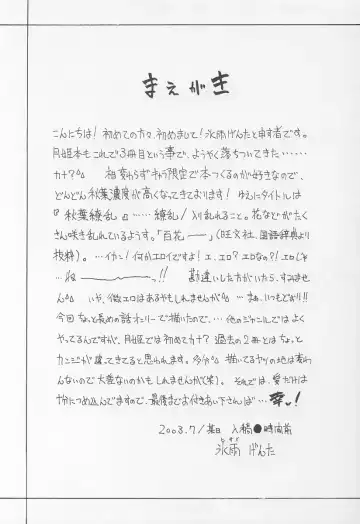 まえがき
こんにちは！初めての方々、初めまして！氷雨げんたと申す者です。
月姫本もこれで3冊目という事で、ようやく落ちついてきた……
カナ？^^ 相変わらずネタ限定で本つくるのが好きなので、
どんどん秋葉濃度が高くなってきております！ゆえにタイトルは
『秋葉繚乱』……繚乱／入り乱れること。花などがたく
さん咲き乱れているようす。「百花――」（旺文社、国語辞典より
抜粋）。…イカン！何かエロイですよ！エ、エロ？エロなの？！エロじゃ
……!! 勘違いした方がいたら、すみません
^^ いや、微エロはあるやもしれませんが^^ …まぁ、いつもどおり!!
今回、なっと長めの話オンリーで描いたので…、他のジャンルではよく
やってるんですが、月姫では初めてカナ？過去の2冊とはなっと
カンジが違ってきてると思われます。多分^^ 描いてるヤツの地は変わ
んないので大差ないのかもしれませんが（笑）。それでは、愛だけは
十分につめ込んでますので、最後までお付きあい下されば…幸っ！
2003.7/某日 入稿●時間前
氷雨げんた